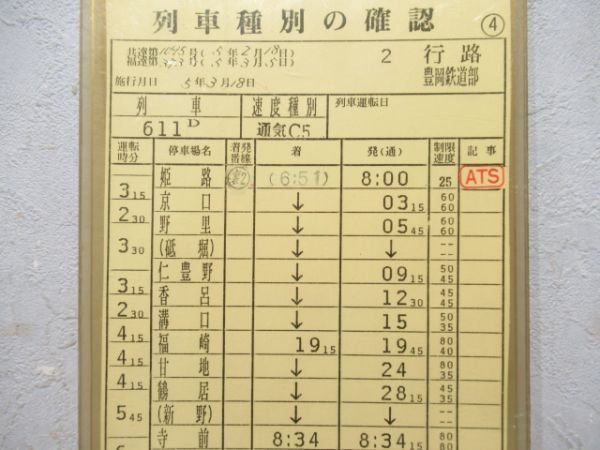 列車種別の確認 ④
共達第1045号(5年2月18日)
福達第 号(5年3月5日)
2 行路
豊岡鉄道部
施行月日 5年3月18日
列車 速度種別 列車運転日
611D 通気C5
運転時分 停車場名 着発番線 着 発(通) 制限速度 記事
姫路 (6:51) 8:00 25 ATS
3 15 京口 ↓ 03 15 60 60
2 30 野里 ↓ 05 45 60 60
(砥堀) ↓ ↓ -- --
3 30 仁豊野 ↓ 09 15 50 45
3 15 香呂 ↓ 12 30 45 45
2 30 溝口 ↓ 15 50 35
4 15 福崎 19 15 19 45 80 40
4 15 甘地 ↓ 24 80 35
4 15 鶴居 ↓ 28 15 45 35
(新野) ↓ ↓ -- --
5 45 寺前 8:34 8:34 15 80 80